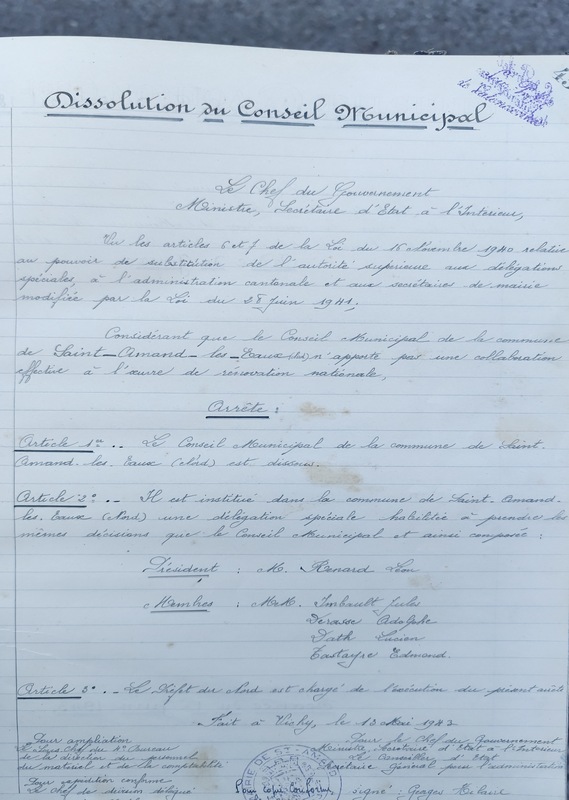 Dissolution du Conseil Municipal
Le Chef du Gouvernement
Ministre, Secrétaire d'Etat à l'Intérieur,
Vu les articles 6 et 7 de la Loi du 16 Novembre 1940 relative
au pouvoir de substitution de l'autorité supérieure aux délégations
spéciales, à l'administration cantonale et aux secrétaires de mairie
modifiée par la Loi du 28 Juin 1941;
Considérant que le Conseil Municipal de la commune
de Saint-Amand-les-Eaux n'apporte pas une collaboration
effective à l'œuvre de rénovation nationale,
Arrête :
Article 1er .. Le Conseil Municipal de la commune de Saint-
Amand-les-Eaux (Nord) est dissous.
Article 2° .. Il est institué dans la commune de Saint-Amand-
les-Eaux (Nord) une délégation spéciale habilitée à prendre les
mêmes décisions que le Conseil Municipal et ainsi composée :
Président : M. Renard Léon
Membres : M.M. Imbault Jules
Derasse Adolphe
Dath Lucien
Tastayre Edmond.
Article 3° .. Le Préfet du Nord est chargé de l'exécution du présent arrêté
Fait à Vichy, le 13 Mai 1943
Pour ampliation
Le Sous-Chef du 4e Bureau
de la direction du personnel
du matériel et de la comptabilité
Pour expédition conforme
Le Chef de division délégué
MAIRIE DE ST-AMAND
Pour Copie Conforme
Pour le Chef du Gouvernement
Ministre Secrétaire d'Etat à l'Intérieur
Le Conseiller d'Etat
Secrétaire Général pour l'administration
signé : Georges Hilaire